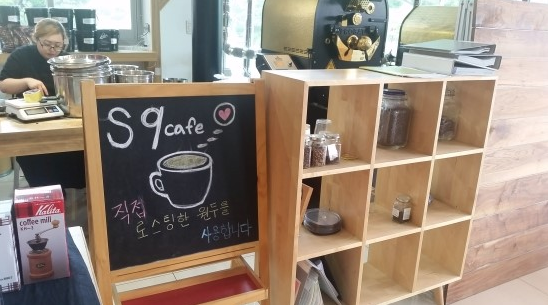 S9 cafe
직접
로스팅한 원두를
사용합니다
Kalita
coffee mill